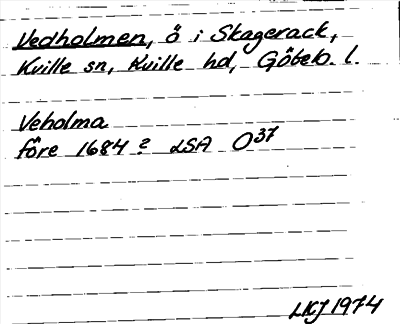 Vedholmen, ö i Skagerack,
Kville sn, Kville hd, Göteb. l.
Veholma
före 1684? LSA O37
LKJ 1974